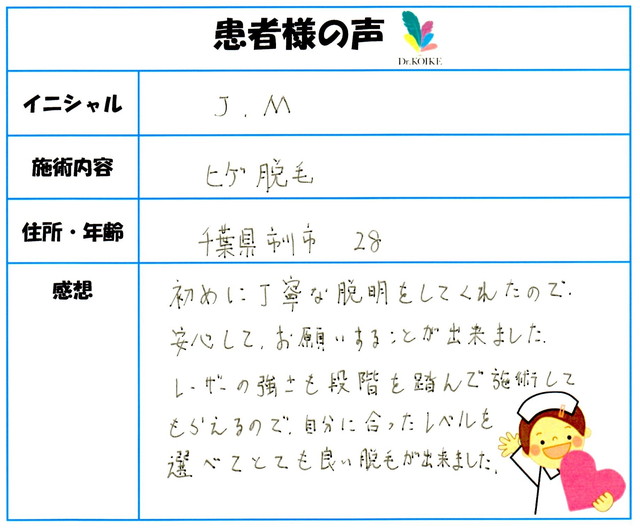 患者様の声
Dr.KOIKE
イニシャル J.M
施術内容 ヒゲ脱毛
住所・年齢 千葉県市川市 28
感想
初めに丁寧な脱明をしてくれたので.
安心して,お願いすることが出来ました.
レーザーの強さも段階を踏んで施術して
もらえるので,自分に合ったレベルを
選べてとても良い脱毛が出来ました.